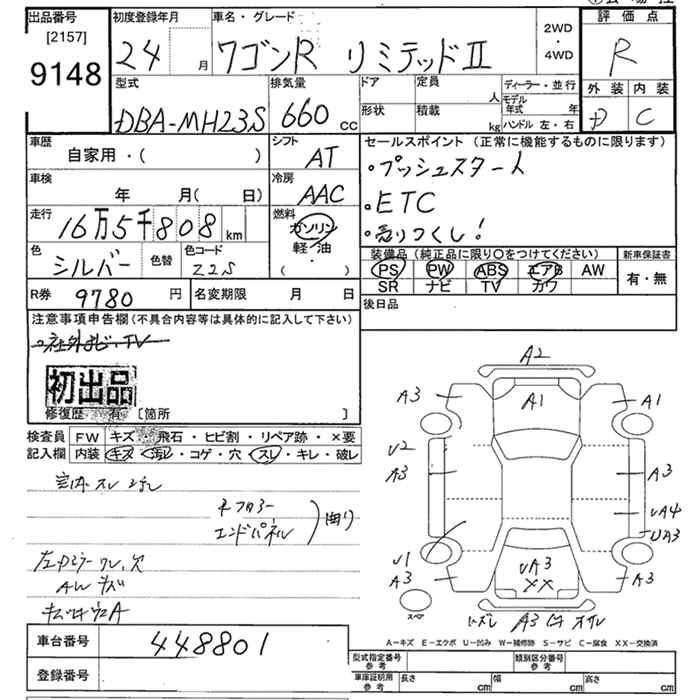 出品番号 初度登録年月 車名・グレード 2WD・4WD 評価点
[2157]
9148 24 月 ワゴンR リミテッドⅡ R
型式 排気量 ドア 定員 人 ディーラー・並行 外装 内装
DBA-MH23S 660 cc 形状 積載 kg モデル年式 年 ハンドル 左・右 D C
車歴 シフト セールスポイント (正常に機能するものに限ります)
自家用・( ) AT ・プッシュスタート
車検 冷房
年 月( 日) AAC ・ETC
走行 燃料
16万5千808 km ガソリン 軽・油 ・( ) ・売りつくし!
色 シルバー 色替 色コード Z2S
装備品 (純正品に限り○をつけてください) 新車保証書
PS PW ABS エアB AW 有・無
SR ナビ TV カワ
R券 9780 円 名変期限 月 日
後日品
注意事項申告欄(不具合内容等は具体的に記入して下さい)
社外ナビ、TV
初出品
修復歴 有 [箇所 ]
検査員 FW キズ・飛石・ヒビ割・リペア跡・×要
記入欄 内装 キズ・汚レ・コゲ・穴・スレ・キレ・破レ
エンドパネル 曲り
AW キズ
A2
A3 A1 A1
U2
A3 A3
UA4
UA3
U1
A3 UA3 A3
XX
スペア
A3
A-キズ E-エクボ U-凹み W-補修跡 S-サビ C-腐食 XX-交換済
車台番号 448801
登録番号
型式指定番号 参考 類別区分番号 参考
車庫証明用 参考 長さ cm 幅 cm 高さ cm